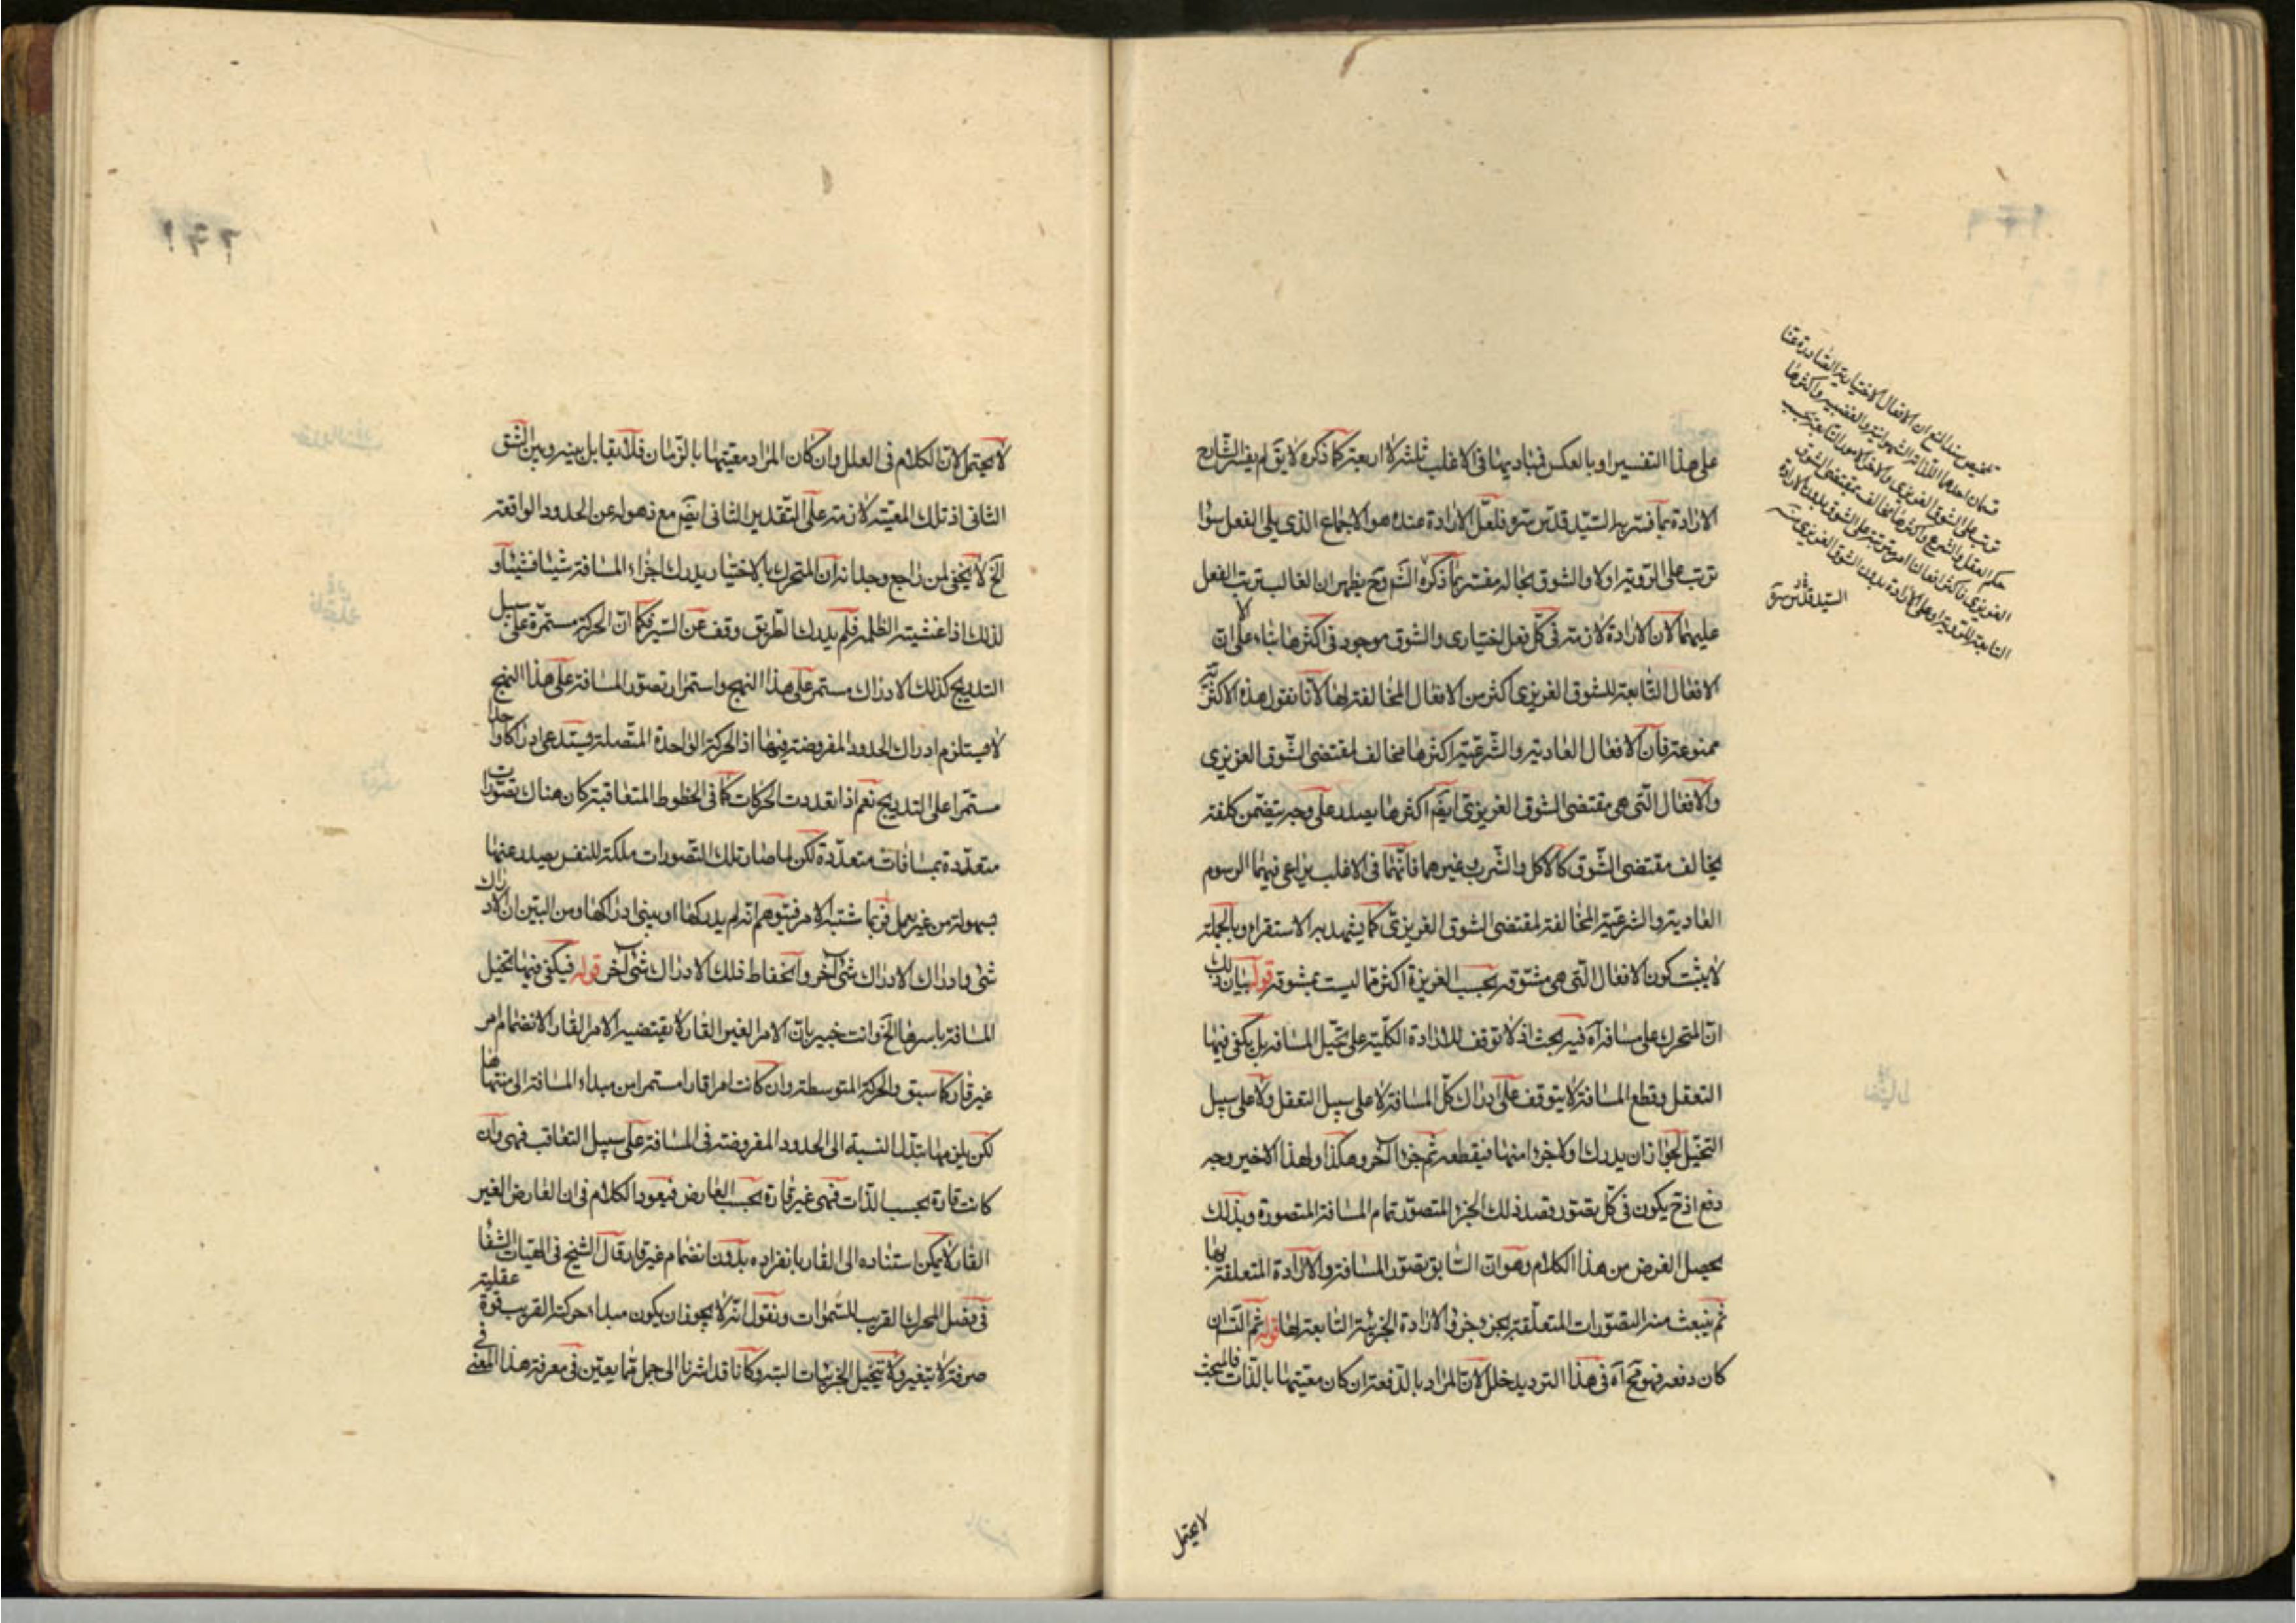 على هذا التفسير او بالعكس فمباديها فى الاغلب ثلثة لا اربعة كما ذكره لا يق لم يفسر الشارح
الارادة بما فسر به السيد قدس سره فلعل الارادة عنده هو الاجماع الذى يلى الفعل سوا
ترتب على الروية او لا والشوق بحاله مفسر بما ذكره الش وح يظهر ان الغالب ترتب الفعل
عليهما لان الارادة لازمة فى كل فعل اختيارى والشوق موجود فى اكثرها بناء على ان
الافعال التابعة للشوق الغريزى اكثر من الافعال المخالفة لها لانا نقول هذه الاكثرية
ممنوعة فان الافعال العادية والشرعية اكثرها مخالف لمقتضى الشوق الغريزى
والافعال التى هى مقتضى الشوق الغريزى ايض اكثرها يصدر على وجه يتضمن كلفة
يخالف مقتضى الشوق كالاكل والشرب وغيرهما فانهما فى الاغلب يراعى فيهما الرسوم
العادية والشرعية المخالفة لمقتضى الشوق الغريزى كما يشهد به الاستقراء وبالجملة
لا يثبت كون الافعال التى هى مشتوقة بحسب الغريزة اكثر مما ليست بمشتوقة قوله بيان ذلك
ان المتحرك على مسافة آه فيه بحث اذ لا توقف للارادة الكلية على تخيل المسافة بل يكفى فيها
التعقل وقطع المسافة لا يتوقف على ادراك كل المسافة لا على سبيل التعقل ولا على سبيل
التخيل لجواز ان يدرك اولا جزءا منها فيقطعه ثم جزءا آخر وهكذا ولهذا الاخير وجه
دفع اذ ح يكون فى كل تصور وقصد ذلك الجزء المتصور تمام المسافة المتصورة وبذلك
يحصل الغرض من هذا الكلام وهو ان السابق تصور المسافة والارادة المتعلقة بها
ثم ينبعث منه التصورات المتعلقة بجزء جزء والارادة الجزئية التابعة لها قوله ثم التان
كان دفعة فهو مح آه فى هذا الترديد خلل لان المراد بالدفعة ان كان معيتها بالذات فالبحث
لا يحتمل
تلخيص سند المنع ان الافعال الاختيارية الصادرة عنا
قسمان احدهما اللذاتة الشهوانية والغضبية واكثرها
حكم العقل والشرع واكثرها مخالف لمقتضى الشوق
السيد قدس سره
لا يحتمل لان الكلام فى العلل وان كان المراد معيتها بالزمان فلا تقابل بينه وبين الشق
الثانى اذ تلك المعية لازمة على التقدير الثانى ايض مع ذهوله عن الحدود الواقعة
الخ لا يخفى لمن راجع وجدانه ان المتحرك بالاختيار يدرك اجزاء المسافة شيئا فشيئا و
لذلك اذا غشيته الظلمة فلم يدرك الطريق وقف عن السير فكما ان الحركة مستمرة على سبيل
التدريج كذلك الادراك مستمر على هذا النهج واستمرار تصور المسافة على هذا النهج
لا يستلزم ادراك الحدود المفروضة فيها اذ الحركة الواحدة المتصلة يستدعى ادراكا واحدا
مستمرا على التدريج نعم اذا تعددت الحركات كما فى الخطوط المتعاقبة كان هناك تصورات
متعددة بمسافات متعددة لكن لما صار تلك التصورات ملكة للنفس يصدر عنها
بسهولة من غير تعمل فربما شتبه الامر فيتوهم انه لم يدركها او ينسى ادراكها ومن البين ان الادراك
شئ وادراك الادراك شئ آخر وانحفاظ ذلك الادراك شئ آخر قوله فيكفى فيها تخيل
المسافة باسرها الخ وانت خبير بان الامر الغير القار لا يقتضيه الامر القار الا نضمام امر
غير قار كما سبق والحركة المتوسطة وان كانت امرا قارا مستمرا من مبداء المسافة الى منتهاها
لكن يلزمها تبدل النسبة الى الحدود المفروضة فى المسافة على سبيل التعاقب فهى وان
كانت قارة بحسب الذات فهى غير قارة بحسب العارض فيعود الكلام فى ان العارض الغير
القار لا يمكن استناده الى القار بانفراده بدون انضمام غير قار قال الشيخ فى الهيات الشفا
فى فصل المحرك القريب للسموات ونقول انه لا يجوز ان يكون مبداء حركة القريب قوة عقلية
صرفة لا يتغير ولا يتخيل الجزئيات البتة وكانا قد اشرنا الى جمل مما يعين فى معرفة هذا المعنى فى